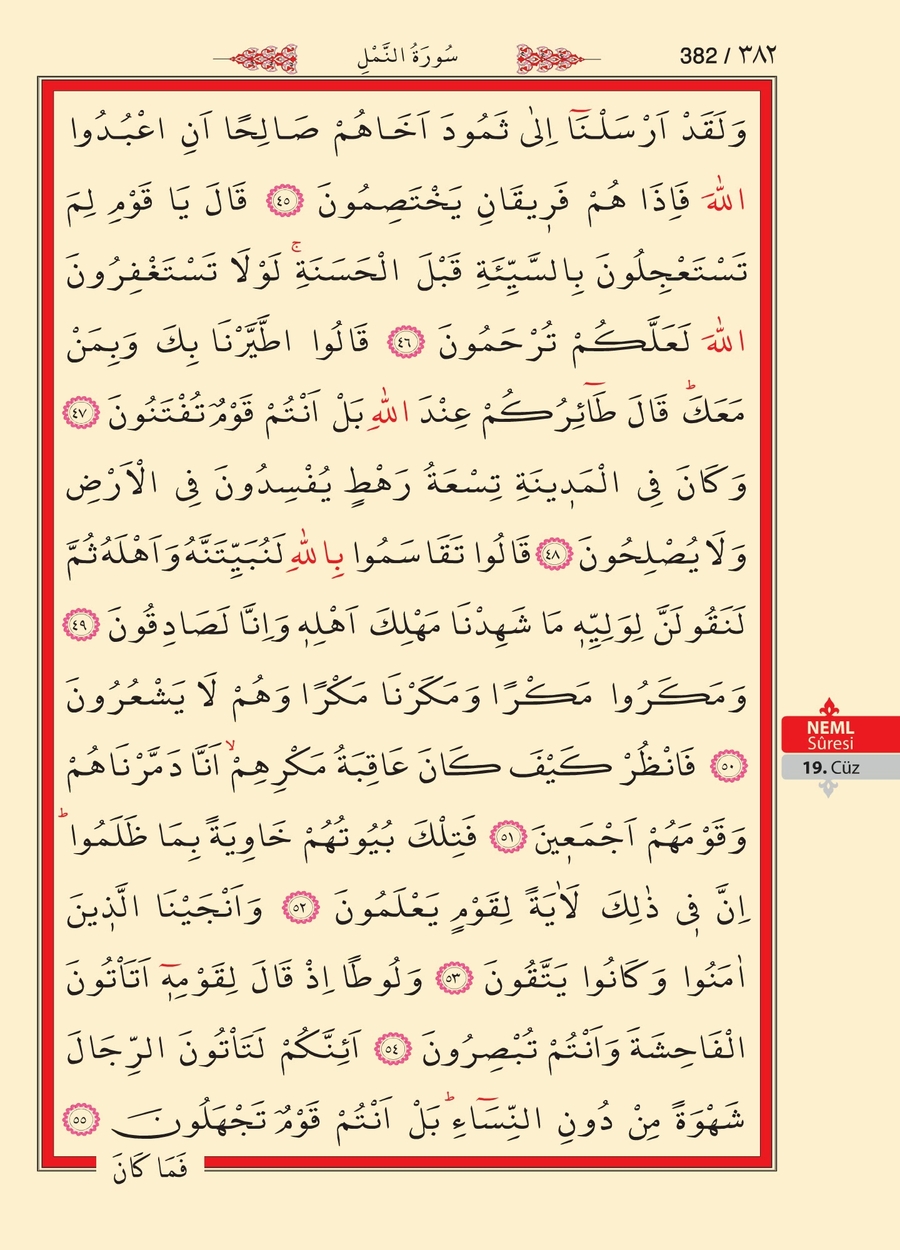 سُورَةُ النَّمْلِ
382 / ٣٨٢
وَلَقَدْ اَرْسَلْنَٓا اِلٰى ثَمُودَ اَخَاهُمْ صَالِحًا اَنِ اعْبُدُوا
اللّٰهَ فَاِذَا هُمْ فَرٖيقَانِ يَخْتَصِمُونَ ﴿٤٥﴾ قَالَ يَا قَوْمِ لِمَ
تَسْتَعْجِلُونَ بِالسَّيِّئَةِ قَبْلَ الْحَسَنَةِۚ لَوْلَا تَسْتَغْفِرُونَ
اللّٰهَ لَعَلَّكُمْ تُرْحَمُونَ ﴿٤٦﴾ قَالُوا اطَّيَّرْنَا بِكَ وَبِمَنْ
مَعَكَؕ قَالَ طَٓائِرُكُمْ عِنْدَ اللّٰهِ بَلْ اَنْتُمْ قَوْمٌ تُفْتَنُونَ ﴿٤٧﴾
وَكَانَ فِى الْمَدٖينَةِ تِسْعَةُ رَهْطٍ يُفْسِدُونَ فِى الْاَرْضِ
وَلَا يُصْلِحُونَ ﴿٤٨﴾ قَالُوا تَقَاسَمُوا بِاللّٰهِ لَنُبَيِّتَنَّهُ وَاَهْلَهُ ثُمَّ
لَنَقُولَنَّ لِوَلِيِّهٖ مَا شَهِدْنَا مَهْلِكَ اَهْلِهٖ وَاِنَّا لَصَادِقُونَ ﴿٤٩﴾
وَمَكَرُوا مَكْرًا وَمَكَرْنَا مَكْرًا وَهُمْ لَا يَشْعُرُونَ
﴿٥٠﴾ فَانْظُرْ كَيْفَ كَانَ عَاقِبَةُ مَكْرِهِمْۙ اَنَّا دَمَّرْنَاهُمْ
وَقَوْمَهُمْ اَجْمَعٖينَ ﴿٥١﴾ فَتِلْكَ بُيُوتُهُمْ خَاوِيَةً بِمَا ظَلَمُواؕ
اِنَّ فٖى ذٰلِكَ لَاٰيَةً لِقَوْمٍ يَعْلَمُونَ ﴿٥٢﴾ وَاَنْجَيْنَا الَّذٖينَ
اٰمَنُوا وَكَانُوا يَتَّقُونَ ﴿٥٣﴾ وَلُوطًا اِذْ قَالَ لِقَوْمِهٖٓ اَتَاْتُونَ
الْفَاحِشَةَ وَاَنْتُمْ تُبْصِرُونَ ﴿٥٤﴾ اَئِنَّكُمْ لَتَاْتُونَ الرِّجَالَ
شَهْوَةً مِنْ دُونِ النِّسَٓاءِؕ بَلْ اَنْتُمْ قَوْمٌ تَجْهَلُونَ ﴿٥٥﴾
فَمَا كَانَ
NEML
Sûresi
19. Cüz